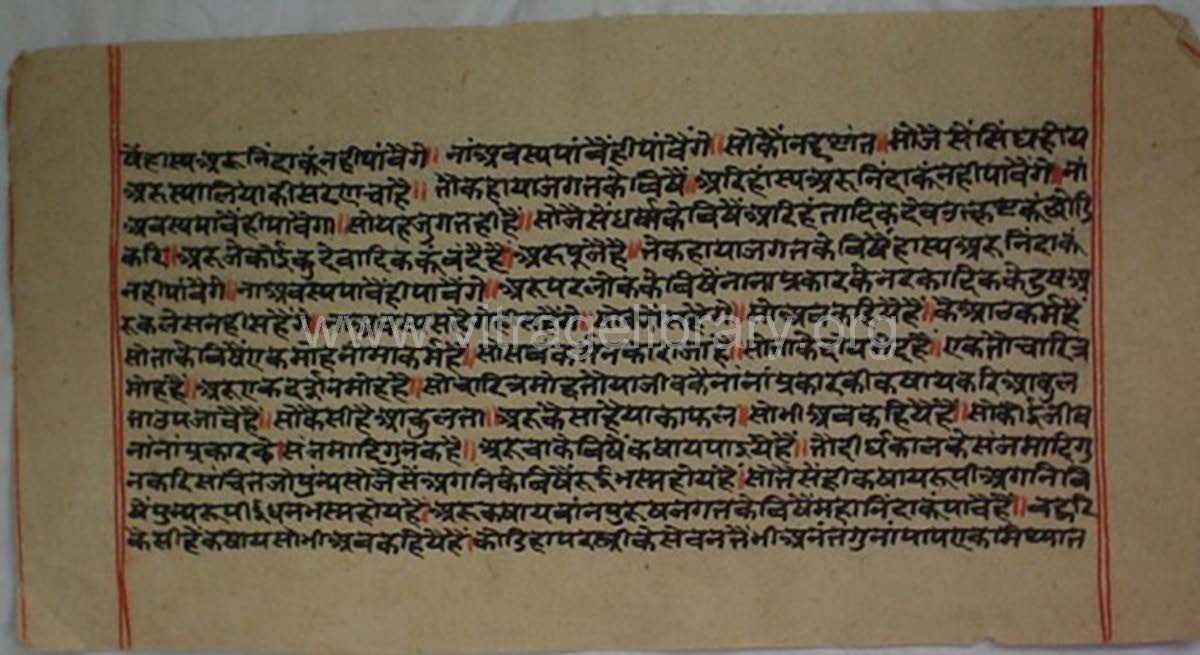 षैंहास्यअरुनिंदाकूंनहीपांवैगे॥नांअवस्यपांवैंहीपांवैंगे॥सोकौंनदृष्टांत॥सोजैसैंसिंघहोय
अरुस्यालियाकीसरणचाहै॥तौकहायाजगतकेविषैं॥अरिहास्यअरुनिंदाकूंनहीपांवैंगे॥नां
अवस्यपांवैंहीपांवैगा॥सोयहजुगतहीहैं॥सोजैसैंधर्म्मकेविषैंअरिहंतादिकदेवउत्कृष्टकूंछोडि
करि॥अरुजेकोईकुदेवादिककूंवंदैहै॥अरुपूजैहै॥तेकहायाजगतकेविषैंहास्यअरुनिंदाकूं
नहीपांवैंगे॥नांअवस्यपांवैंहीपांवैंगे॥अरुपरलोककेविषैंनानाप्रकारकेनरकादिककेदुषअ
रुकलेसनहीसहैंगे॥
www.vitragelibrary.org
सोताकेविषैंएकमोहनामाकर्महै॥सोसबकर्मनकाराजाहै॥सोताकेदोयभेदहै॥एकतौचारित्र
मोहहै॥अरुएकदर्शनमोहहै॥सोचारित्रमोहतौयाजीवकैनांनांप्रकारकीकषायकरिआकुल
ताउपजावैहै॥सोकैसीहैआकुलता॥अरुकैसाहैयाकाफल॥सोभीअबकहियेहैं॥सोकोईजीव
नांनांप्रकारके॥संजमादिगुनकहै॥अरुवाकेविषैंकषायपाईयेहैं॥तौदीर्घकालकेसंजमादिगु
नकरिसंचितजोपुंन्यसोजैसैंअगनिकेविषैंरूईभस्महोयहै॥सोतैसैंहीकषायरूपीअगनिवि
षैंपुन्यरूपीईंधनभस्महोयहै॥अरुकषायवांनपुरुषजगतकेविषैंमहानिंदाकूंपावैहैं॥बहुरि
कैसीहैकषायसोभीअबकहियेहैं॥कोडिहापरस्त्रीकेसेवनतैंभीअनंतगुनांपापएकमिथ्यात